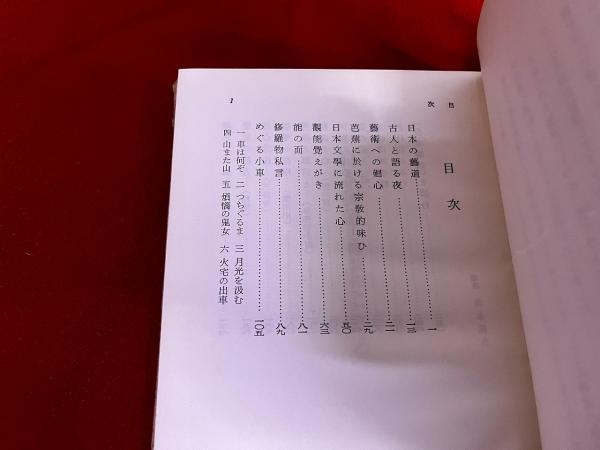 目次
1
目次
日本の藝道……一
古人と語る夜……一三
藝術への廻心……二一
芭蕉に於ける宗敎的味ひ……二九
日本文學に流れた心……五〇
觀能覺えがき……六三
能の面……八一
修羅物私言……八九
めぐる小車……一〇五
一 車は何ぞ 二 つちぐるま 三 月光を汲む
四 山また山 五 煩惱の鬼女 六 火宅の出車